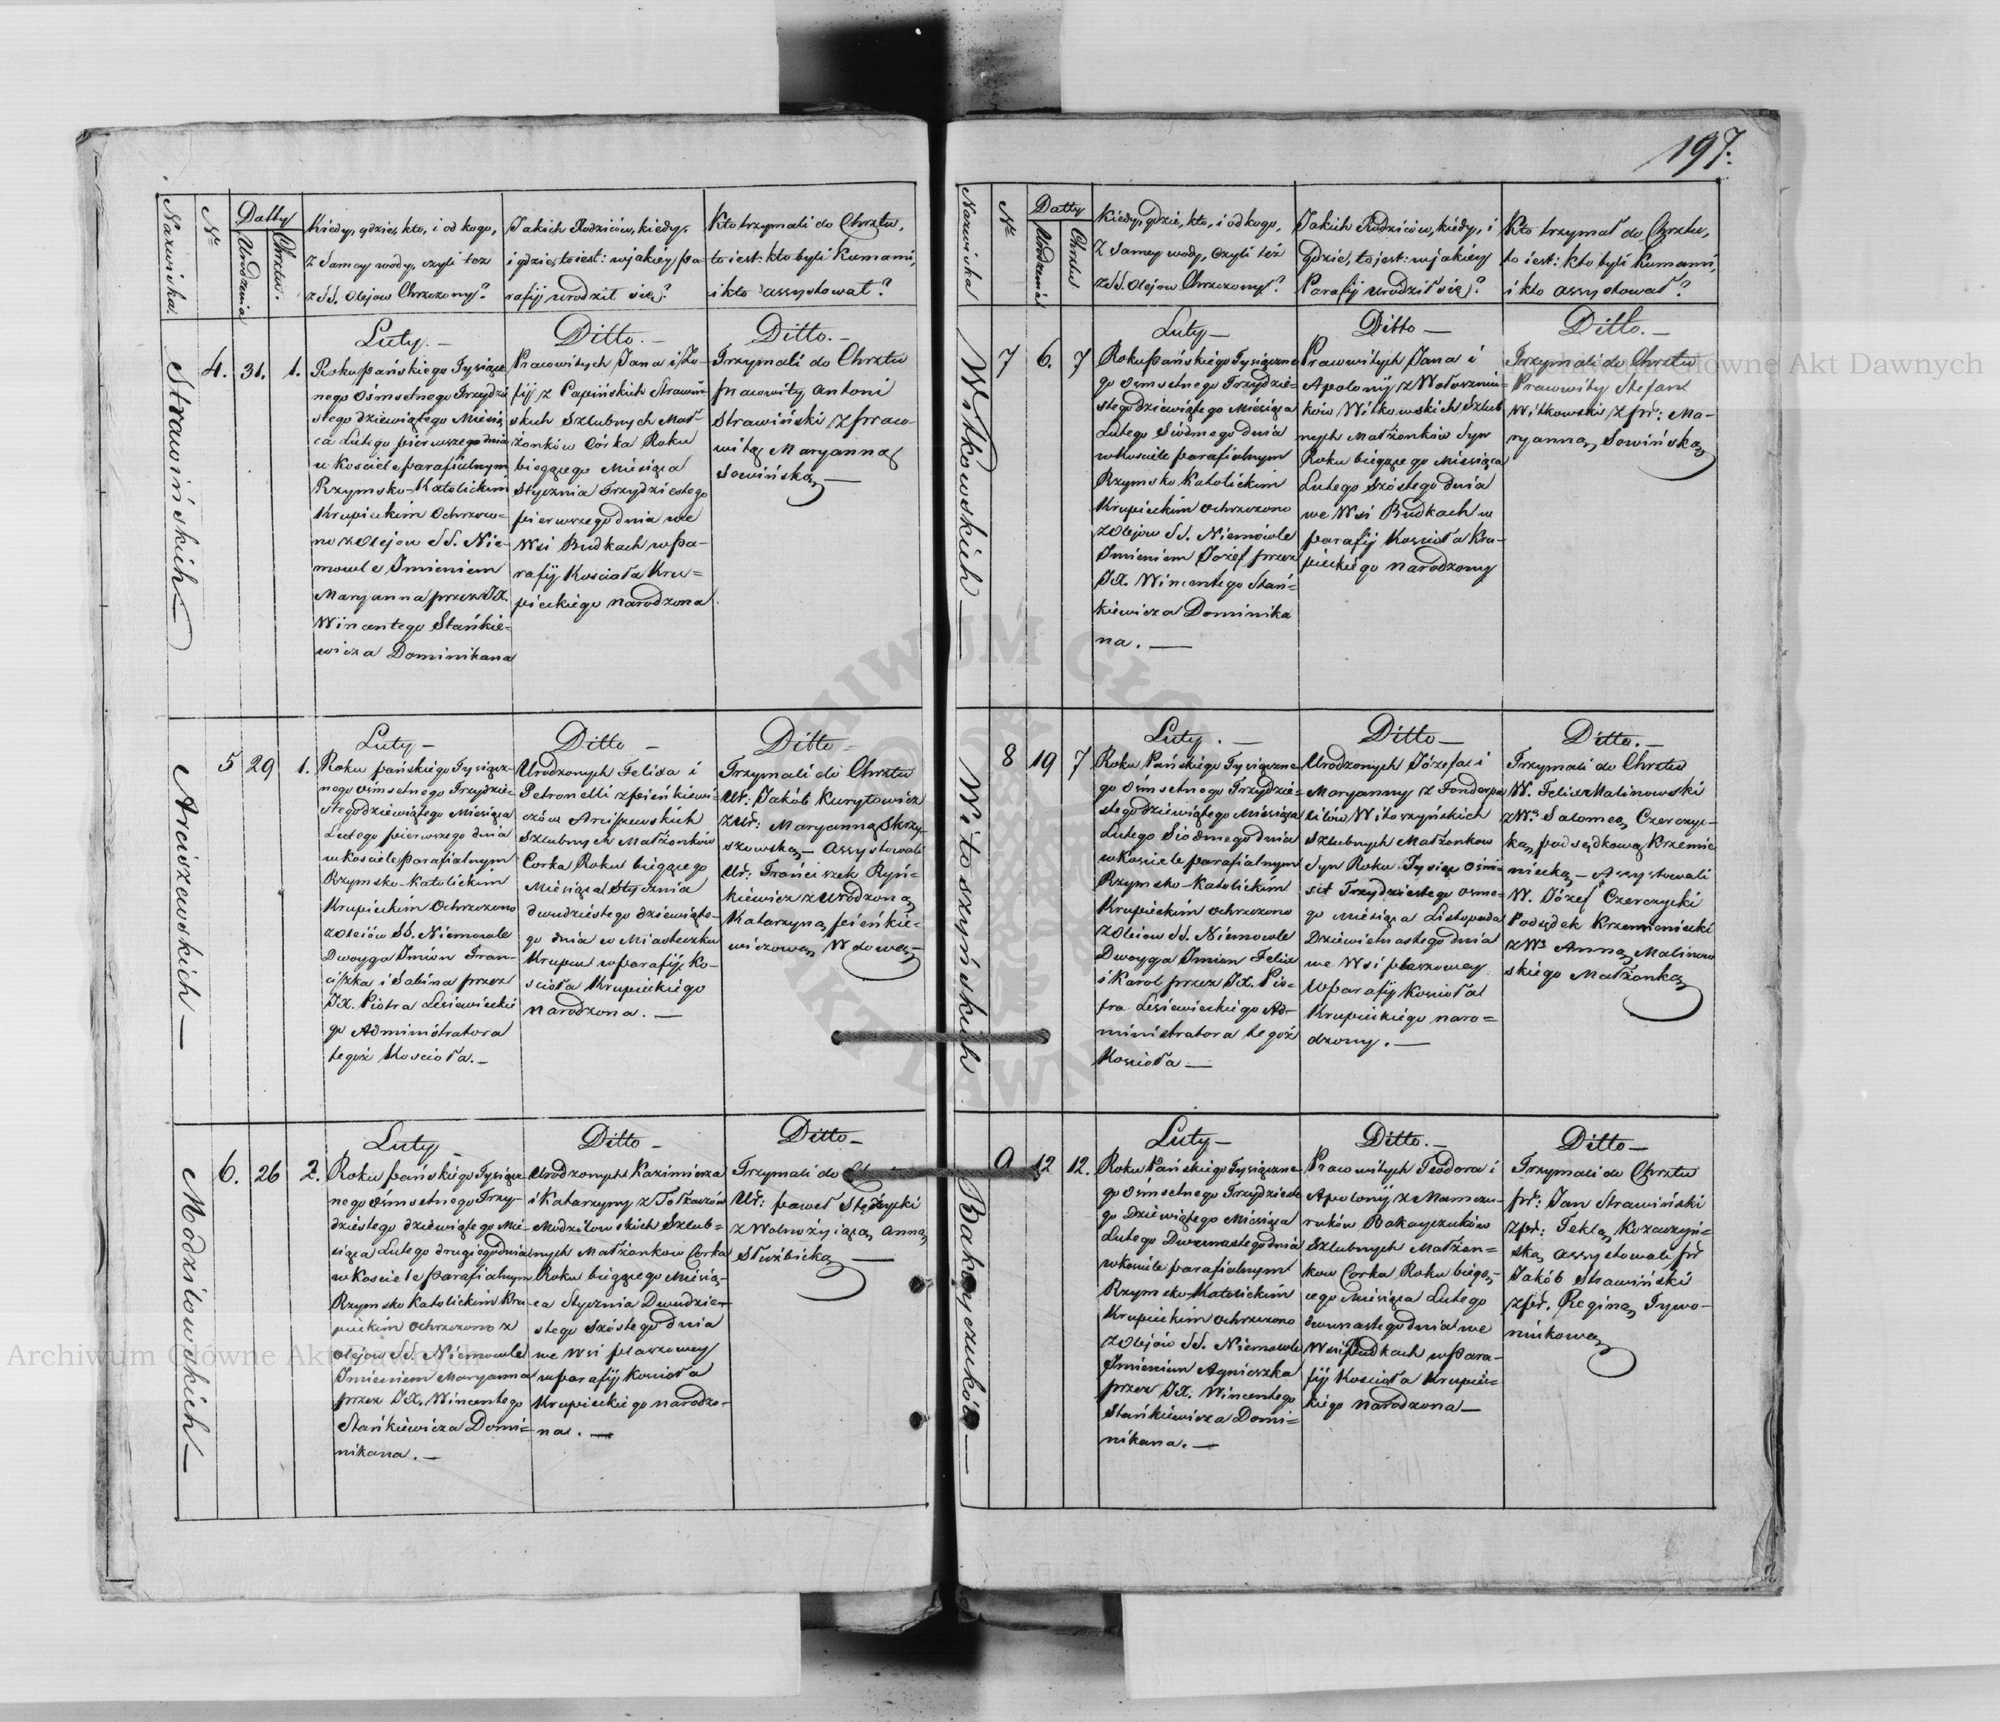 197.
Nazwiska
No
Datty
Urodzenia
Chrztu.
Kiedy, gdzie, kto, i od kogo,
z samey wody, czyli też
z SS. Olejow Chrzczony?
Jakich Rodziców, kiedy,
i gdzie, to iest: w jakiey pa-
rafij urodził się?
Kto trzymali do Chrztu,
to iest: kto byli Kumami,
i kto assystował?
Strawińskich
4. 31. 1.
Luty. —
Roku Pańskiego Tysiącz
nego Ośmsetnego Trzydzie
stego dziewiątego Miesią
ca Lutego pierwszego dnia
w Kościele parafialnym
Rzymsko-Katolickim
Krupieckim Ochrzczo-
no z Olejow SS. Nie-
mowle Imieniem
Maryanna przez JX
Wincentego Stańkie-
wicza Dominikana
Ditto. —
Pracowitych Jana i Zo-
fij z Papińskich Strawiń
skich Szlubnych Mał-
żonków Córka Roku
biegącego Miesiąca
Stycznia Trzydziestego
pierwszego dnia we
Wsi Budkach w Pa-
rafij Kościoła Kru-
pieckiego narodzona
Ditto. —
Trzymali do Chrztu
Pracowity Antoni
Strawiński z Praco-
witą Maryanną
Sowińską —
Araiszewskich —
5 29 1.
Luty —
Roku Pańskiego Tysiącz-
nego Ośmsetnego Trzydzie-
stego dziewiątego Miesiąca
Lutego pierwszego dnia
w Kościele parafialnym
Rzymsko-Katolickim
Krupieckim Ochrzczono
z Oleiów SS. Niemowle
Dwoyga Imion Fran-
ciszka i Sabina przez
JX. Piotra Lisiewieckie
go Administratora
tegoż Kościoła. —
Ditto —
Urodzonych Felixa i
Petronelli z Pieńkiewi-
czów Arciszewskich
Szlubnych Małżonków
Corka Roku biegącego
Miesiąca Stycznia
dwudziestego dziewiąte-
go dnia w Miasteczku
Krupcu w parafij Ko-
ścioła Krupieckiego
narodzona. —
Ditto —
Trzymali do Chrztu
Ur: Jakób Kuryłowicz
z Ur: Maryanną Skrzy-
szowską — Assystowali
Ur: Franciszek Ryń-
kiewicz z Urodzoną
Katarzyną Pieńkie-
wiczową Wdową —
Modzilowskich —
6. 26 2.
Luty —
Roku Pańskiego Tysiącz
nego Ośmsetnego Trzy-
dziestego dziewiątego Mie-
siąca Lutego drugiego dnia
w Kościele parafialnym
Rzymsko Katolickim Kru
pieckim Ochrzczono z
Olejow SS Niemowle
Imieniem Maryanna
przez JX. Wincentego
Stańkiewicza Domi-
nikana. —
Ditto —
Urodzonych Kazimierza
i Katarzyny z Tołkaczów
Modzilowskich Szlub-
nych Małżonkow Corka
Roku biegącego Miesią-
ca Stycznia Dwudzie-
stego Szóstego dnia
we Wsi Płaszowey
w parafij Kościoła
Krupieckiego narodzo-
na. —
Ditto —
Trzymali do
Ur: Paweł Stężycki
z Wolnożyiącą Anną
Służbicką —
Nazwiska
No
Datty
Urodzenia
Chrztu
Kiedy, gdzie, kto, i od kogo,
z samey wody, czyli też
z SS. Olejow Chrzczony?
Jakich Rodziców, kiedy, i
gdzie, to jest: w jakiey
Parafij urodził się?
Kto trzymał do Chrztu,
to iest: kto byli Kumami,
i kto assystował?
Witkowskich —
7 6. 7
Luty —
Roku Pańskiego Tysiączne
go Ośmsetnego Trzydzie-
stego dziewiątego Miesiąca
Lutego Siódmego dnia
w Kościele parafialnym
Rzymsko Katolickim
Krupieckim Ochrzczono
z Olejow SS. Niemowle
Imieniem Józef przez
JX. Wincentego Stań-
kiewicza Dominika
na. —
Ditto —
Pracowitych Jana i
Apolonij z Wołoszniu-
ków Witkowskich Szlub
nych Małżonków Syn
Roku biegącego Miesiąca
Lutego Szóstego dnia
we Wsi Budkach w
parafij Kościoła Kru-
pieckiego narodzony
Ditto. —
Trzymali do Chrztu
Pracowity Stefan
Witkowski z Pr: Ma-
ryanną Sowińską
Witoszyńskich
8 19 7
Luty. —
Roku Pańskiego Tysiączne
go Ośmsetnego Trzydzie-
stego dziewiątego Miesiąca
Lutego Siódmego dnia
w Kościele parafialnym
Rzymsko-Katolickim
Krupieckim Ochrzczono
z Oleiow SS. Niemowle
Dwoyga Imion Felix
i Karol przez JX. Pio-
tra Lisiewieckiego Ad-
ministratora tegoż
Kościoła —
Ditto —
Urodzonych Józefa i
Maryanny z
Witoszyńskich
Szlubnych Małżonkow
Syn Roku Tysiąc Ośm
set Trzydziestego osme-
go Miesiąca Listopada
Dziewietnastego dnia
we Wsi Płaszowey
w parafij Kościoła
Krupieckiego naro-
dzony. —
Ditto. —
Trzymali do Chrztu
W. Felix Malinowski
z W. Salomeą Czerczyc-
ką podsędkową Krzemie
niecką — Assystowali
W. Józef Czerczycki
Podsędek Krzemieniecki
z W. Anną Malinow
skiego Małżonką
Bakayczuków —
9 12 12.
Luty —
Roku Pańskiego Tysiączne
go Ośmsetnego Trzydzieste
go Dziewiątego Miesiąca
Lutego Dwunastego dnia
w Kościele parafialnym
Rzymsko-Katolickim
Krupieckim Ochrzczono
z Olejów SS. Niemowle
Imieniem Agnieszka
przez JX. Wincentego
Stańkiewicza Domi-
nikana. —
Ditto. —
Pracowitych Teodora i
Apolonij z Mamczu-
ruków Bakayczuków
Szlubnych Małżon-
kow Corka Roku biegą-
cego Miesiąca Lutego
dwunastego dnia we
Wsi Budkach w Para-
fij Kościoła Krupiec-
kiego narodzona —
Ditto —
Trzymali do Chrztu
Pr: Jan Strawiński
z Pr: Teklą Kozaczyń-
ską assystowali Pr
Jakób Strawiński
z Pr. Reginą Tywo-
niukową
Archiwum Główne Akt Dawnych
Archiwum Główne Akt Dawnych
ARCHIWUM GŁÓWNE
AKT DAWNYCH